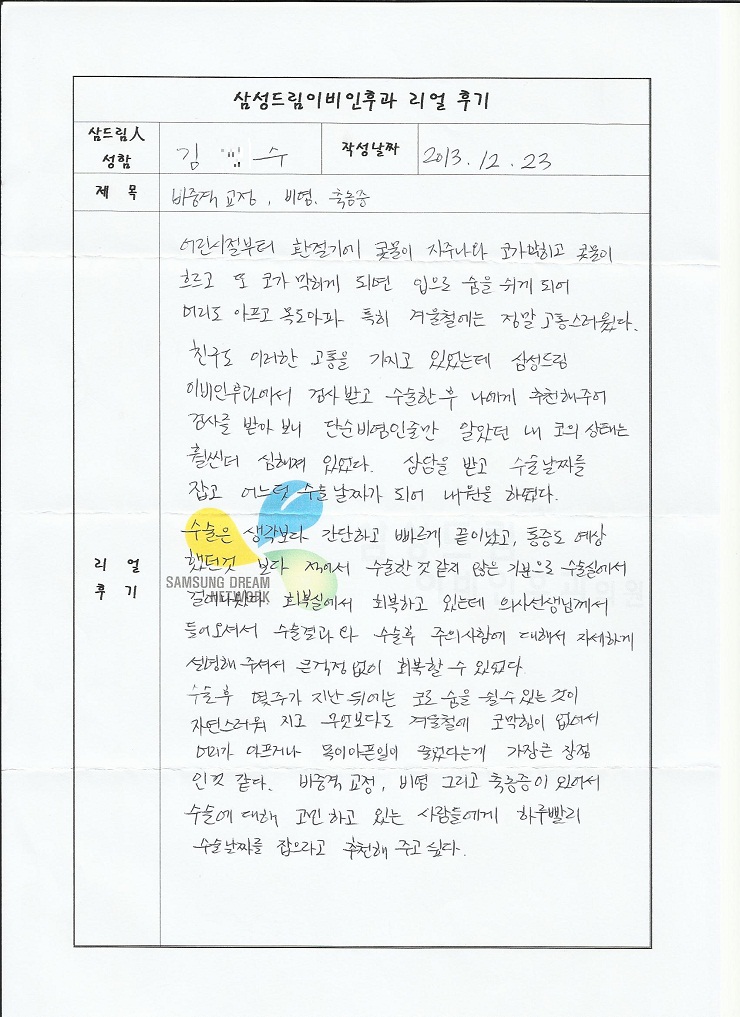 삼성드림이비인후과 리얼 후기
삼드림人
성함
김 수
작성날짜
2013. 12. 23
제 목
비중격 교정, 비염, 축농증
어린시절부터 환절기에 콧물이 자주나와 코가막히고 콧물이
흐르고 또 코가 막히게 되면 입으로 숨을 쉬게 되어
머리도 아프고 목도아파 특히 겨울철에는 정말 고통스러웠다.
친구도 이러한 고통을 가지고 있었는데 삼성드림
이비인후과에서 검사받고 수술한후 나에게 추천해주어
검사를 받아 보니 단순비염인줄만 알았던 내 코의 상태는
훨씬더 심해져 있었다. 상담을 받고 수술날짜를
잡고 어느덧 수술날짜가 되어 내원을 하였다.
리 얼
후 기
수술은 생각보다 간단하고 빠르게 끝이났고, 통증도 예상
했던것 보다 적어서 수술한것 같지 않은 기분으로 수술실에서
걸어나왔다. 회복실에서 회복하고 있는데 의사선생님께서
들어오셔서 수술결과와 수술후 주의사항에 대해서 자세하게
설명해 주셔서 큰걱정 없이 회복할 수 있었다.
수술후 몇주가 지난 뒤에는 코로 숨을 쉴수있는것이
자연스러워 지고 무엇보다도 겨울철에 코막힘이 없어서
머리가 아프거나 목이아픈일이 줄었다는게 가장큰 장점
인것 같다. 비중격 교정, 비염 그리고 축농증이 있어서
수술에 대해 고민하고 있는 사람들에게 하루빨리
수술날짜를 잡으라고 추천해 주고 싶다.
SAMSUNG DREAM
NETWORK